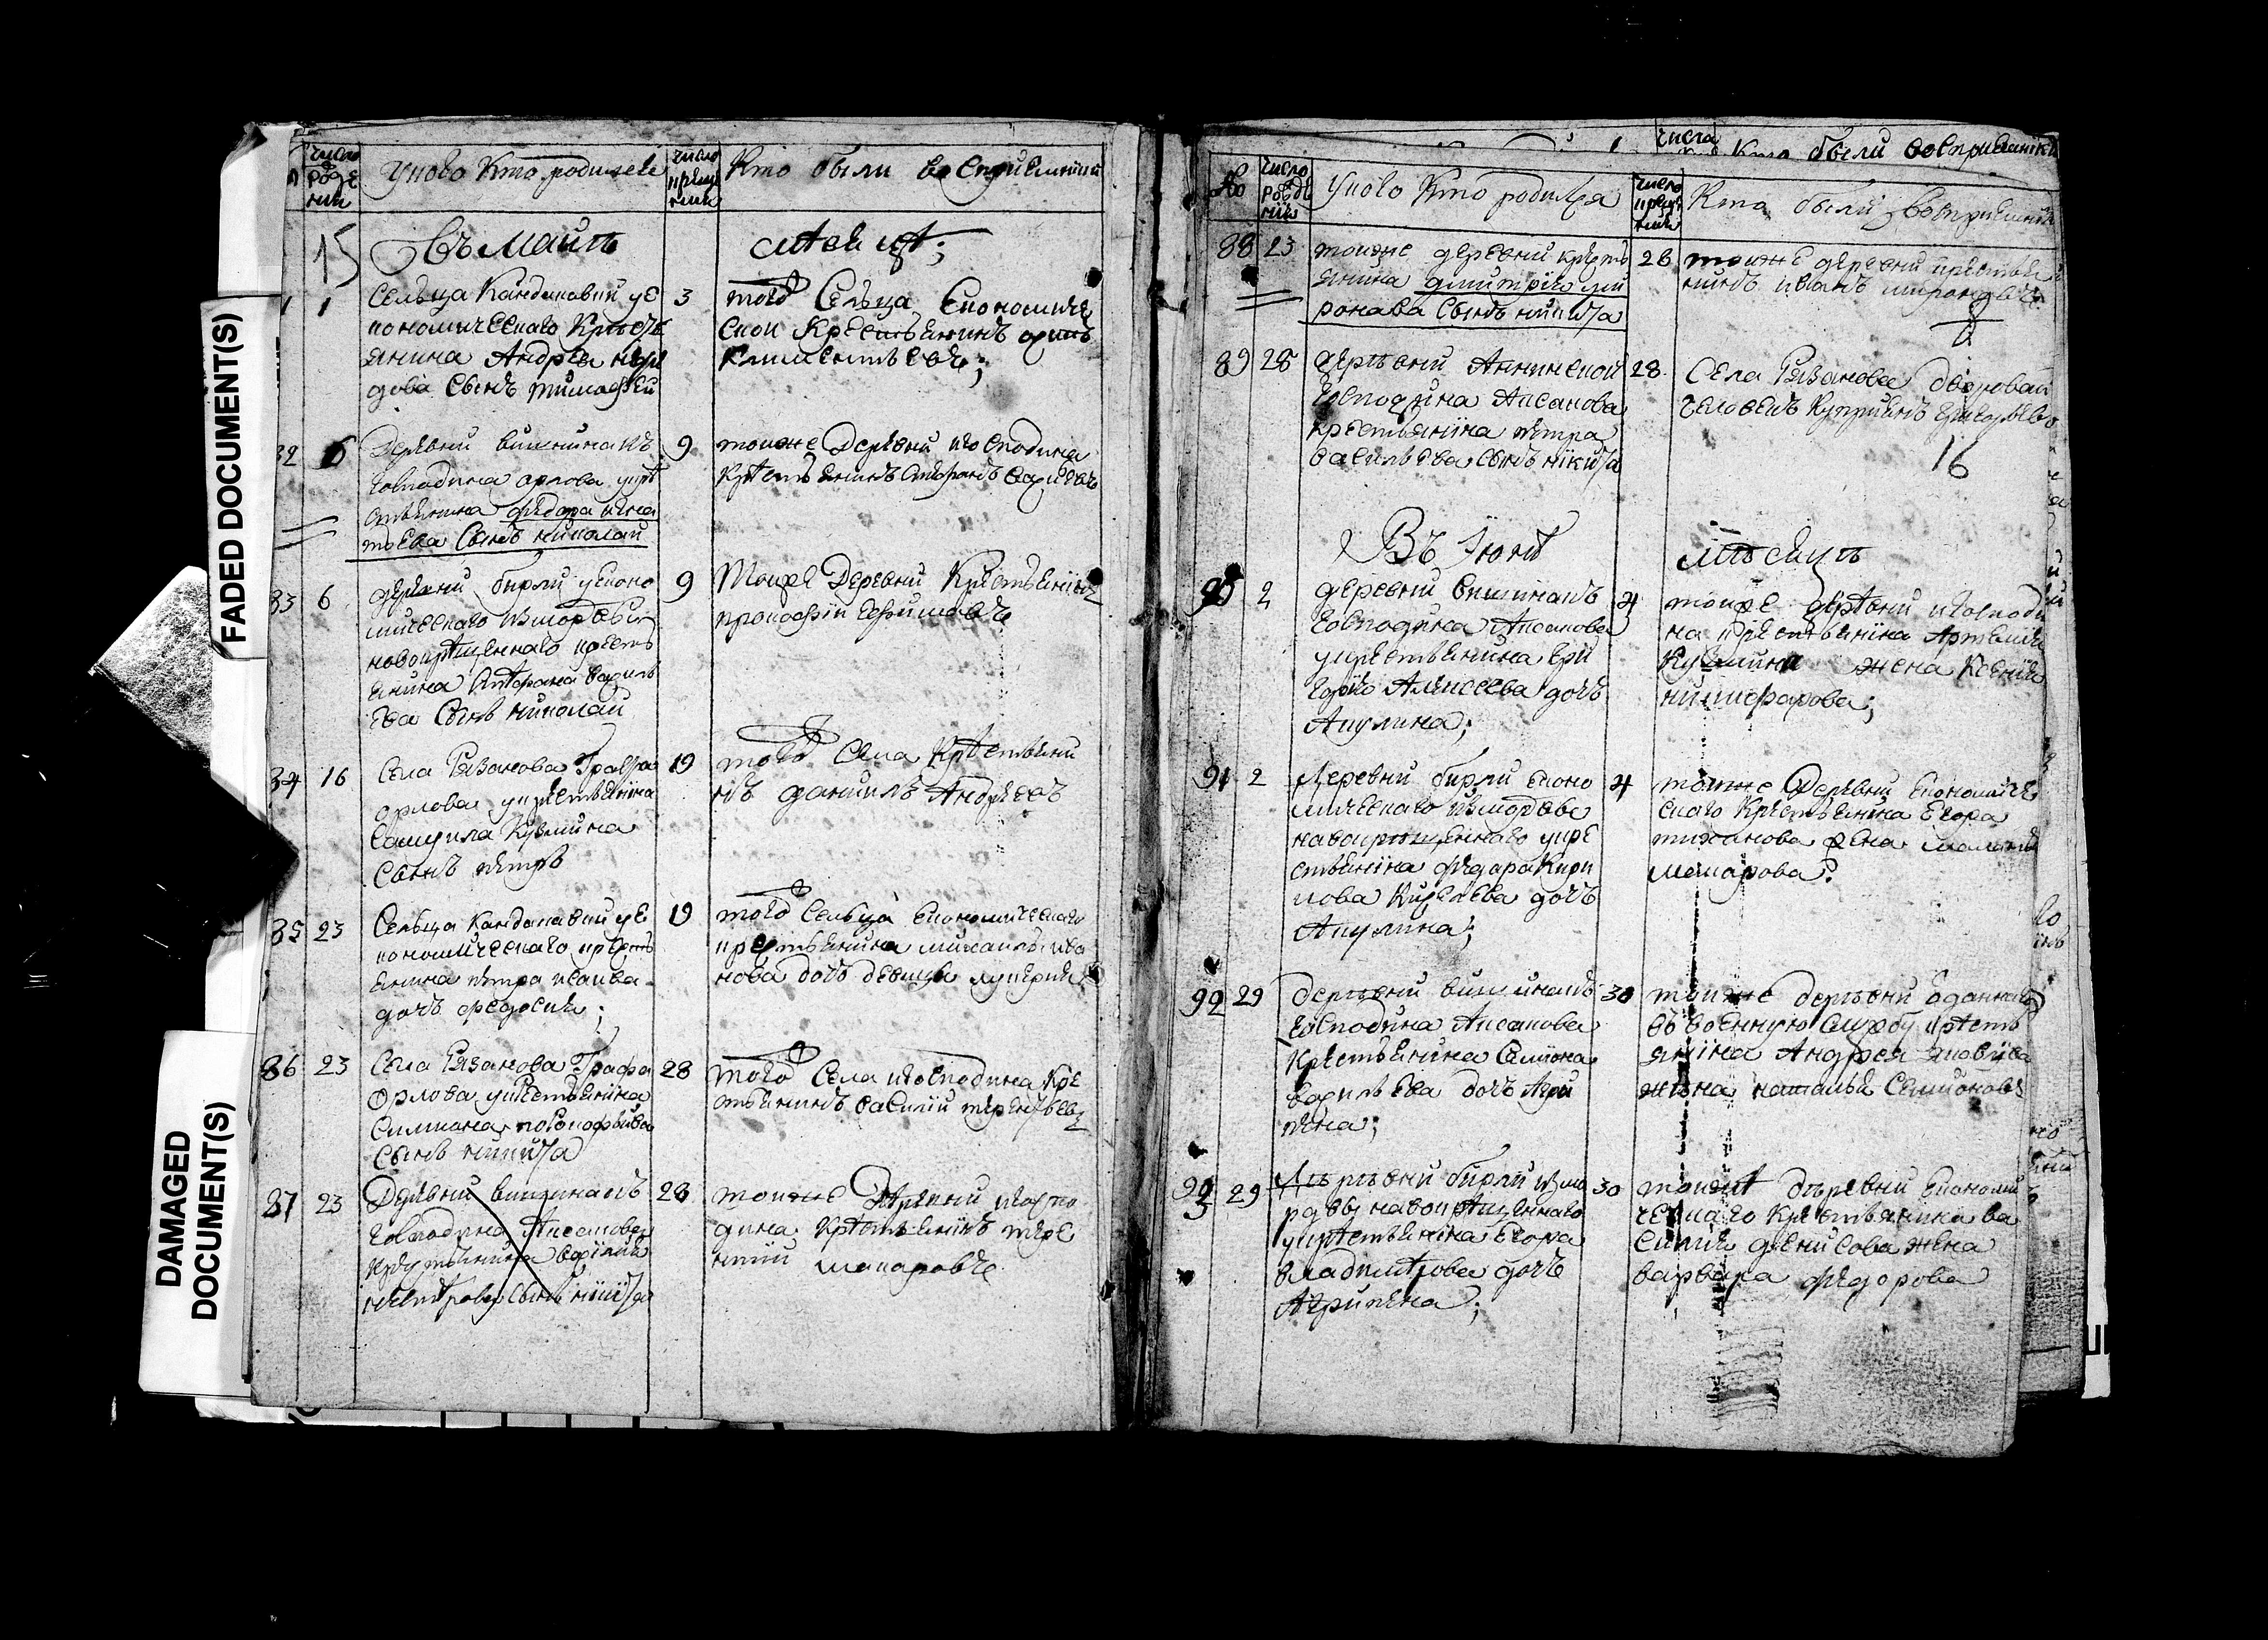 FADED DOCUMENT(S)
DAMAGED
DOCUMENT(S)
число
рожде
нии
У ково кто родился
число
креще
нии
Кто были восприемники
15
Въ маие
месяце;
1
Сельца Кандаковки у е
кономическаго крестъ
янина Андрея
дова сынъ тимофей
3
того Сельца Економиче
ской крестьянинъ
Климентьевъ;
82 6
Деревни вишинакъ
Господина орлова у кре
стьянина федора игна
тьева сынъ николай
9
тоиже Деревни и господина
крестьянинъ
83 6
деревни бирли у еконо
мическаго измордвы
новокрещеннаго кресть
янина василь
ева сынъ николай
9
Тоиже Деревни Крестьянинъ
прокофий ефимовъ
84 16
Села Рязанова Графа
орлова у крестьянина
Самуила Кузмина
Сынъ петръ
19
того Села Крестьяни
нъ даниилъ Андреевъ
85 23
Сельца Кандаковки у е
кономическаго кресть
янина петра исаива
дочь федосия;
19
того Сельца економическаго
крестьянина михаила ива
нова дочь девица лукерия
86 23
Села Рязанова Графа
Орлова у крестьянина
Симиона
Сынъ никита
28
того Села и господина Кре
стьянинъ василий терентьевъ
87 23
Деревни вишинакъ
Господина Аксакова
крестьянина василия
сынъ никита
28
тоиже Деревни и госпо
дина крестьянинъ тере
нтий макаровъ
числа
Кто были восприемники
№
число
рожде
нии
У ково кто родился
число
креще
нии
Кто были восприемники
88 23
тоиже деревни кресть
янина димитрия ми
ронава сынъ никита
28
тоиже деревни крестья
нинъ иванъ мироновъ
89 28
деревни Аннинской
Господина Аксакова
крестьянина петра
васильева сынъ никита
28
Села Рязанова дворовай
человекъ Куприянъ григорьевъ
16
Въ Iюне
месяце
90 2
деревни вишинакъ
Господина Аксакова
у крестьянина гри
гория Алексеева дочь
Акулина;
4
тоиже деревни и господи
на крестьянина Артемия
Кузмина жена Ксения
никифорова;
91 2
Деревни бирли еконо
мическаго измордвы
навокрещеннаго у кре
стьянина федара Кири
лова Киселева дочь
Акулина;
4
тоиже Деревни економиче
скаго Крестьянина Егора
тиханова жена
макарова.
92 29
деревни вишинакъ
Господина Аксакова
Крестьянина Симиона
васильева дочь Агри
пена;
30
тоиже деревни отданнаго
въ военную службу кресть
янина Андрея
жена наталья Семионова
93 29
Деревни бирли измо
рдвы навокрещеннаго
у крестьянина Егора
владимерова дочь
Агрипена;
30
тоиже деревни економи
ческаго крестьянина ва
силия денисова жена
варвара федорова